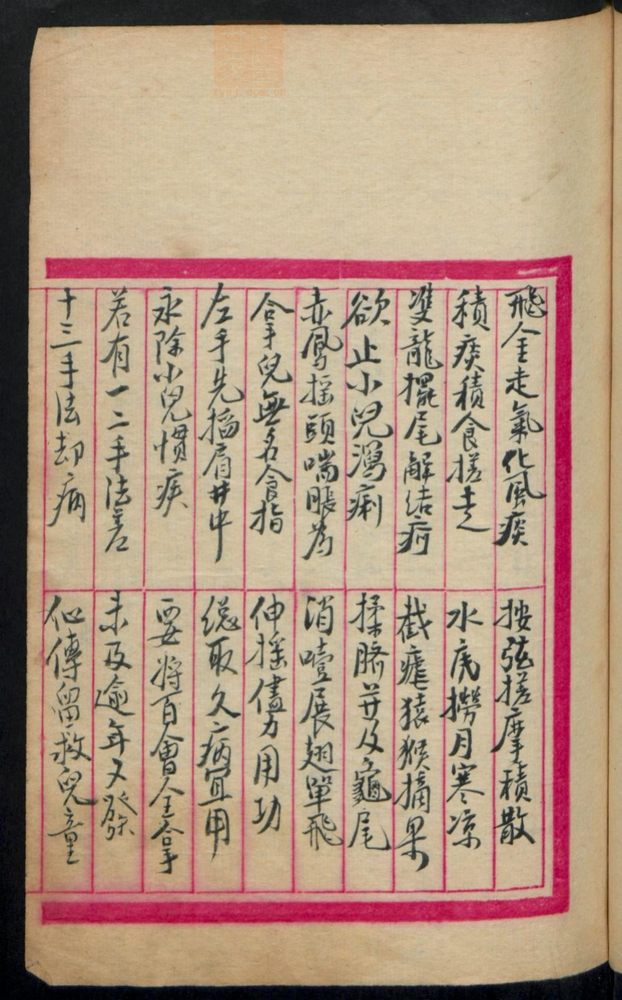 飛金走氣化風痰　按弦搓摩積散
積痰積食搓走　水底撈月寒凉
雙龍擺尾解結疴　截瘧猿猴摘果
欲止小兒瀉痢　揉臍並及龜尾
赤鳳摇頭喘脹為　消噎展翅單飛
合手兒無名食指　伸摇儘力用功
左手先掐肩井中　總取久病宜用
永除小兒慣疾　要将百會全合手
若有一二手法差　未及逾年又發
十三手法却病　仙傳留救兒童